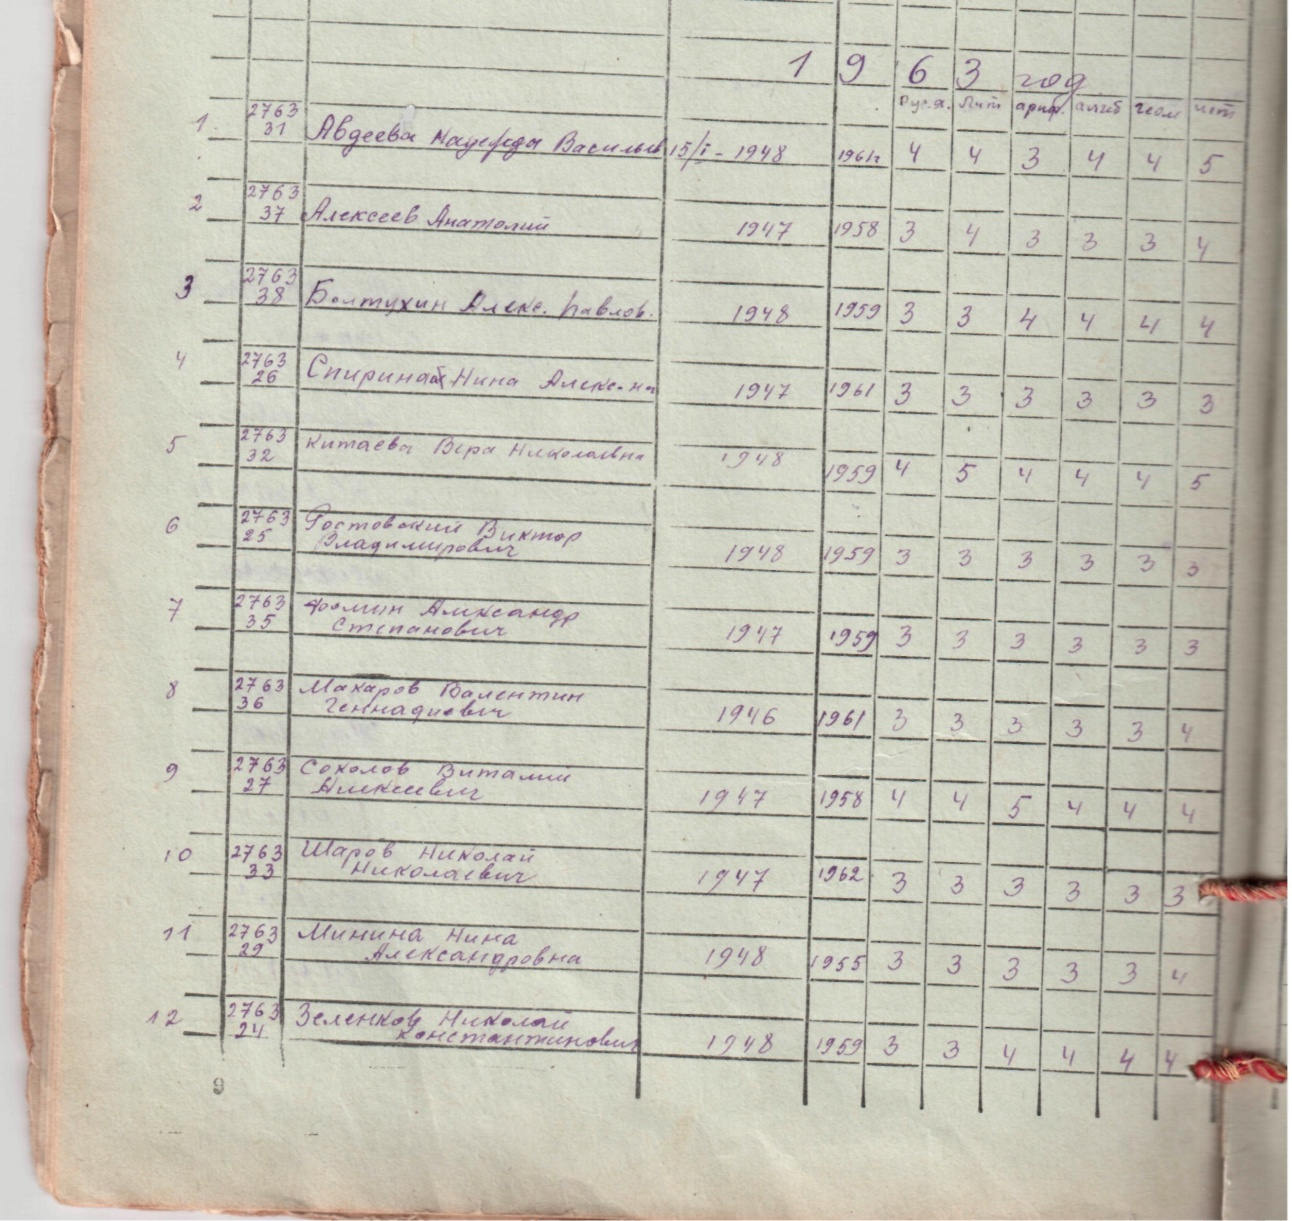 1963 год
Рус.я. Лит ариф. алгеб геом ист
1 2763 31 Авдеева Надежда Васильев 15/I - 1948 1961г 4 4 3 4 4 5
2 2763 37 Алексеев Анатолий 1947 1958 3 4 3 3 3 4
3 2763 38 Болтухин Алекс. Павлов. 1948 1959 3 3 4 4 4 4
4 2763 26 Спирина Нина Алекс-на 1947 1961 3 3 3 3 3 3
5 2763 32 Китаева Вера Николаевна 1948 1959 4 5 4 4 4 5
6 2763 25 Ростовский Виктор
Владимирович 1948 1959 3 3 3 3 3 3
7 2763 35 Фомин Александр
Степанович 1947 1959 3 3 3 3 3 3
8 2763 36 Макаров Валентин
Геннадиевич 1946 1961 3 3 3 3 3 4
9 2763 27 Соколов Виталий
Алексеевич 1947 1958 4 4 5 4 4 4
10 2763 33 Шаров Николай
Николаевич 1947 1962 3 3 3 3 3 3
11 2763 29 Минина Нина
Александровна 1948 1955 3 3 3 3 3 4
12 2763 24 Зеленков Николай
Константинович 1948 1959 3 3 4 4 4 4
9